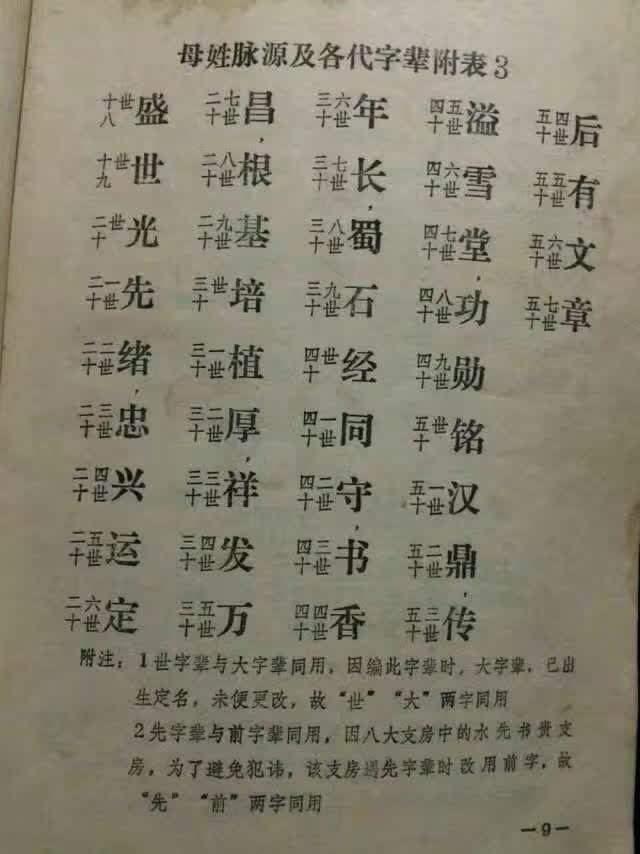 母姓脉源及各代字辈附表3
十八世盛
十九世世
二十世光
二十一世先
二十二世绪，
二十三世忠
二十四世兴
二十五世运
二十六世定
二十七世昌，
二十八世根
二十九世基
三十世培
三十一世植
三十二世厚，
三十三世祥
三十四世发
三十五世万
三十六世年
三十七世长，
三十八世蜀
三十九世石
四十世经
四十一世同
四十二世守，
四十三世书
四十四世香
四十五世溢
四十六世雪
四十七世堂，
四十八世功
四十九世勋
五十世铭
五十一世汉
五十二世鼎，
五十三世传
五十四世后
五十五世有
五十六世文
五十七世章
附注：1世字辈与大字辈同用，因编此字辈时，大字辈，已出
生定名，未便更改，故“世”“大”两字同用
2先字辈与前字辈同用，因八大支房中的水先书贵支
房，为了避免犯讳，该支房遇先字辈时改用前字，故
“先”“前”两字同用
—9—